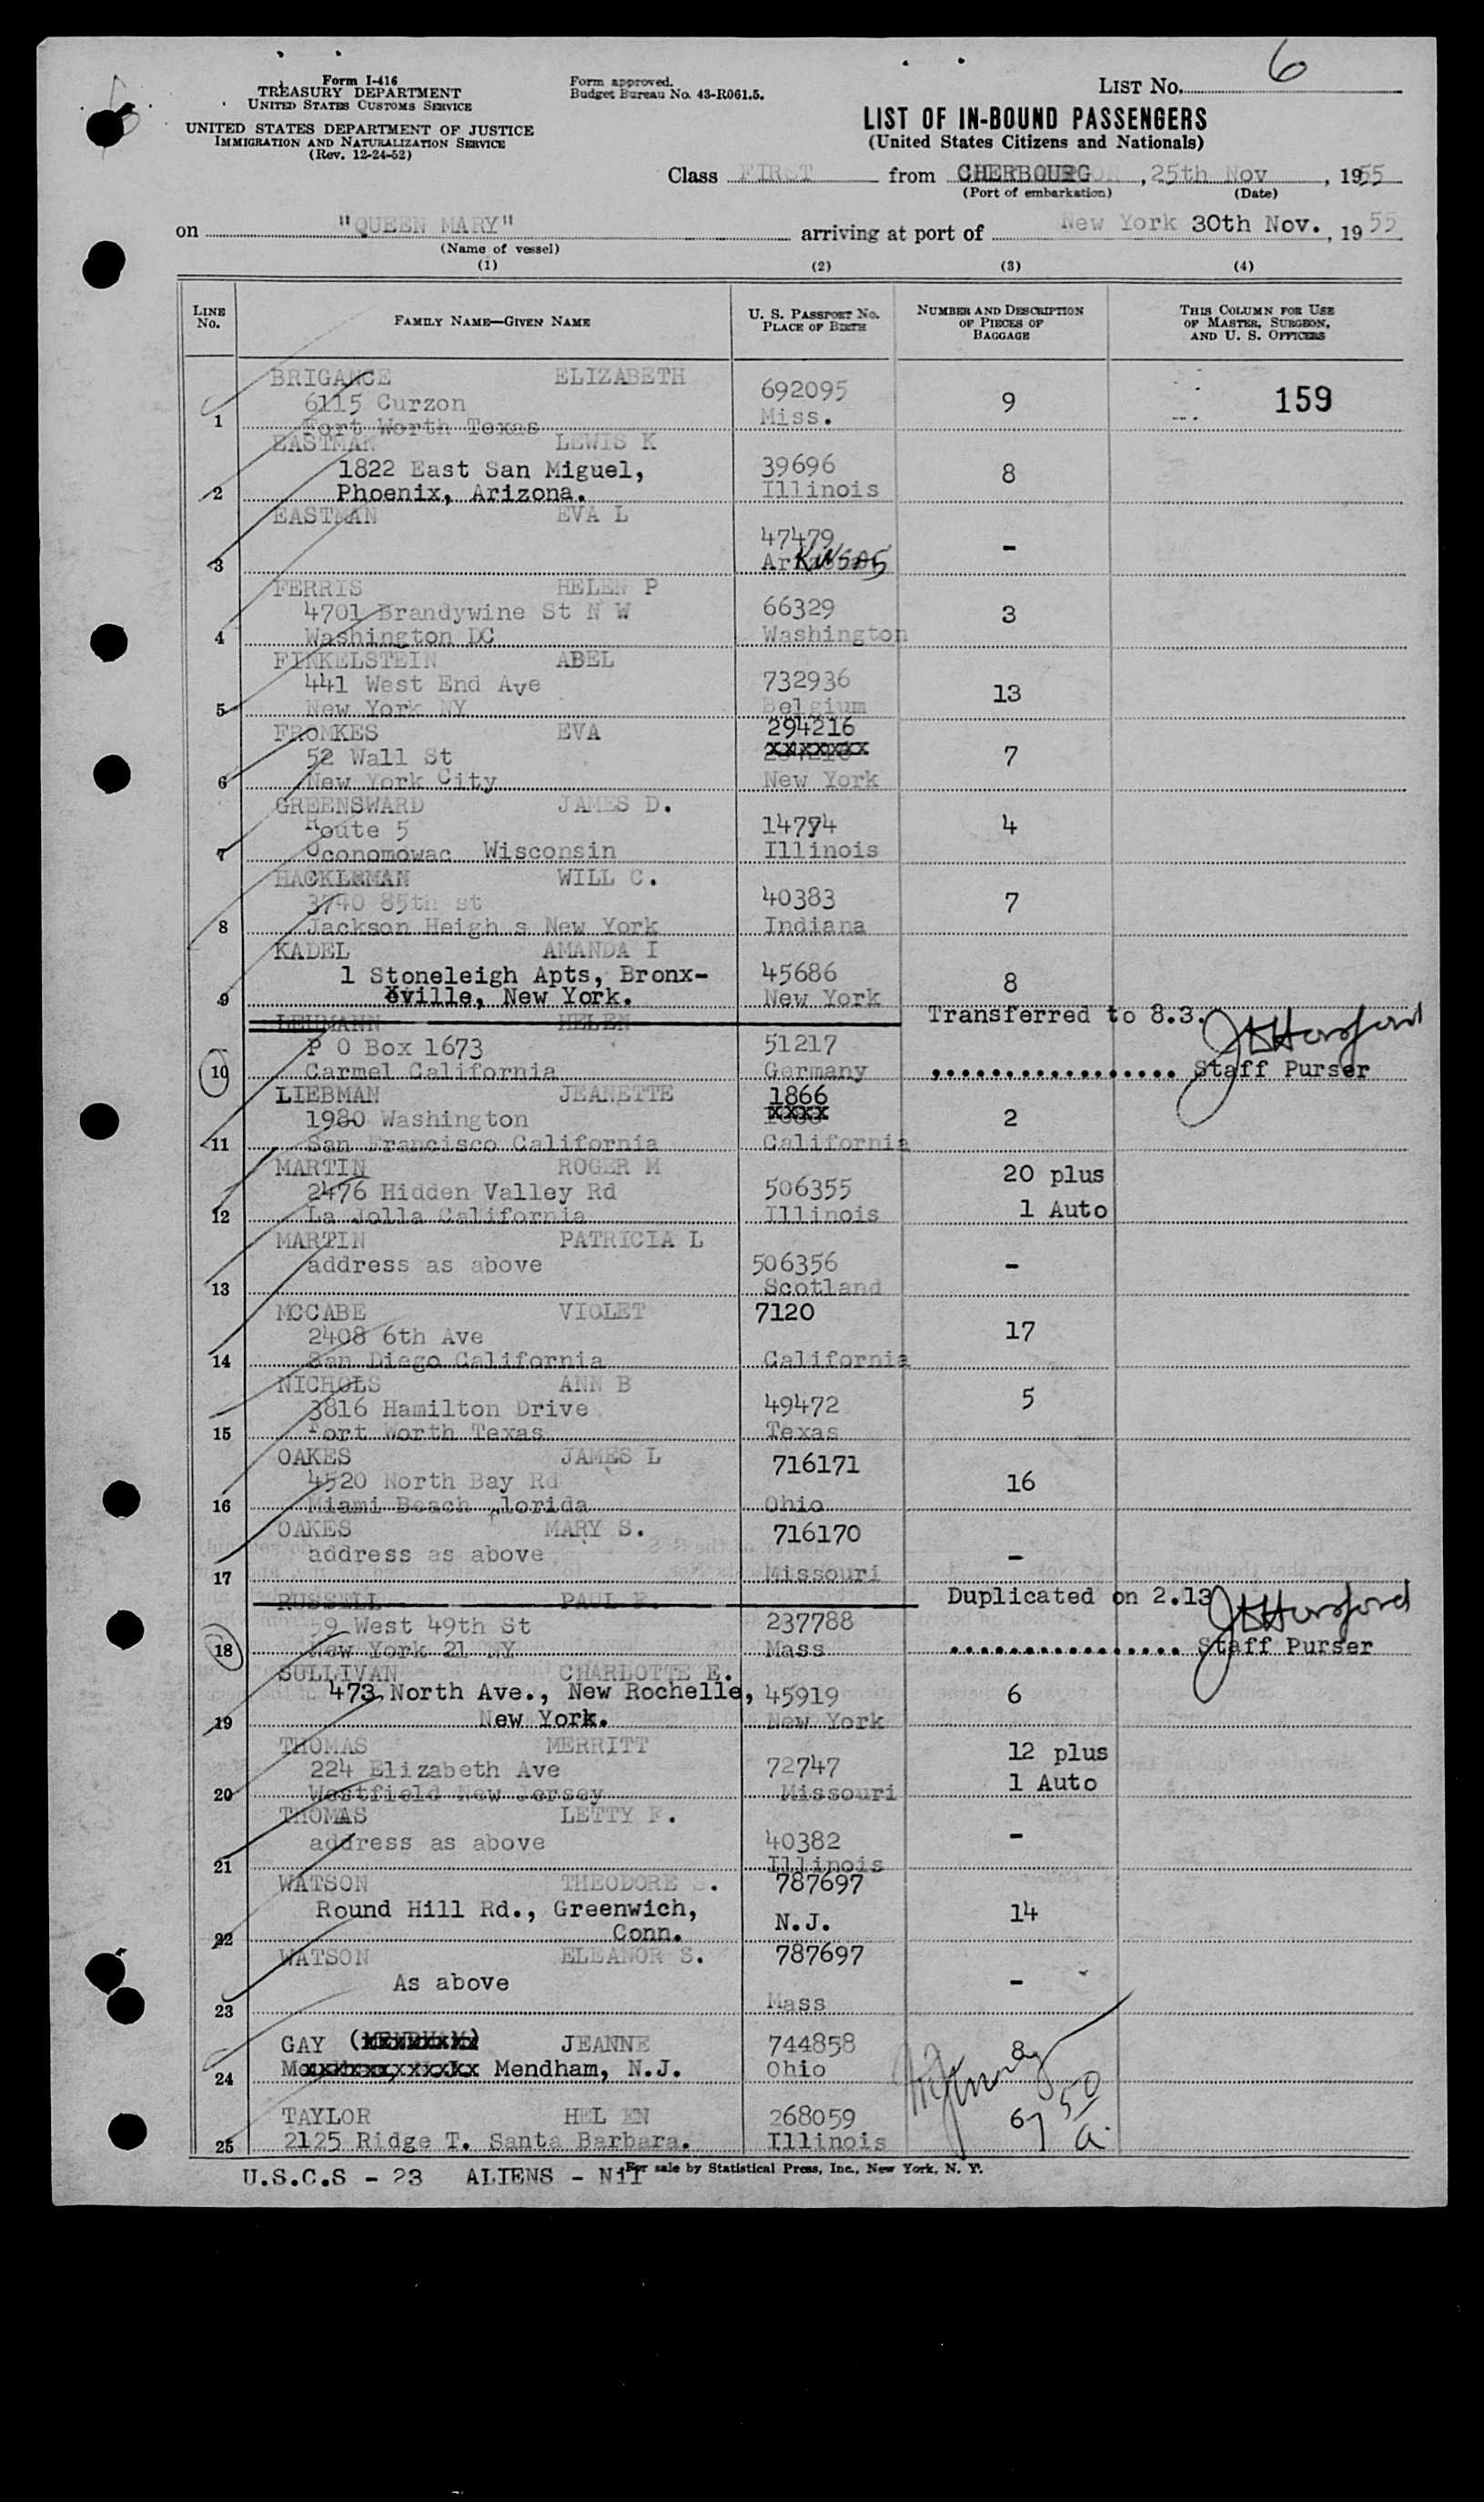 Form I-416
TREASURY DEPARTMENT
UNITED STATES CUSTOMS SERVICE
UNITED STATES DEPARTMENT OF JUSTICE
IMMIGRATION AND NATURALIZATION SERVICE
(Rev. 12-24-52)
Form approved.
Budget Bureau No. 43-R061.5.
LIST No. 6
LIST OF IN-BOUND PASSENGERS
(United States Citizens and Nationals)
Class FIRST from CHERBOURG, 25th Nov, 1955
(Port of embarkation) (Date)
on "QUEEN MARY" arriving at port of New York 30th Nov., 1955
(Name of vessel)
(1) (2) (3) (4)
LINE No. FAMILY NAME—GIVEN NAME U. S. PASSPORT No. PLACE OF BIRTH NUMBER AND DESCRIPTION OF PIECES OF BAGGAGE THIS COLUMN FOR USE OF MASTER, SURGEON, AND U. S. OFFICERS
BRIGANCE ELIZABETH 692095
6115 Curzon 9 159
1 Fort Worth Texas Miss.
EASTMAN LEWIS K
1822 East San Miguel, 39696 8
2 Phoenix, Arizona. Illinois
EASTMAN EVA L
47479 -
3 ArKansas
FERRIS HELEN P
4701 Brandywine St N W 66329 3
4 Washington DC Washington
FINKELSTEIN ABEL
441 West End Ave 732936 13
5 New York NY Belgium
FROMKES EVA 294216
52 Wall St xxxxxxx 7
6 New York City New York
GREENSWARD JAMES D.
Route 5 14794 4
7 Oconomowac Wisconsin Illinois
HACKLEMAN WILL C.
3740 85th st 40383 7
8 Jackson Heigh s New York Indiana
KADEL AMANDA I
1 Stoneleigh Apts, Bronx- 45686 8
9 xville, New York. New York
LEHMANN HELEN Transferred to 8.3.
P O Box 1673 51217
10 Carmel California Germany Staff Purser
LIEBMAN JEANETTE 1866
1980 Washington xxxx 2
11 San Francisco California California
MARTIN ROGER M 20 plus
2476 Hidden Valley Rd 506355
12 La Jolla California Illinois 1 Auto
MARTIN PATRICIA L
address as above 506356 -
13 Scotland
MCCABE VIOLET 7120
2408 6th Ave 17
14 San Diego California California
NICHOLS ANN B
3816 Hamilton Drive 49472 5
15 Fort Worth Texas Texas
OAKES JAMES L 716171
4520 North Bay Rd 16
16 Miami Beach Florida Ohio
OAKES MARY S. 716170
address as above -
17 Missouri
RUSSELL PAUL Duplicated on 2.13
59 West 49th St 237788
18 New York 21 NY Mass Staff Purser
SULLIVAN CHARLOTTE E.
473 North Ave., New Rochelle, 45919 6
19 New York. New York
THOMAS MERRITT 12 plus
224 Elizabeth Ave 72747 1 Auto
20 Westfield New Jersey Missouri
THOMAS LETTY F.
address as above 40382 -
21 Illinois
WATSON THEODORE S. 787697
Round Hill Rd., Greenwich, 14
22 Conn. N.J.
WATSON ELEANOR S. 787697
As above -
23 Mass
GAY (MENDHAM) JEANNE 744858 8
24 Mendham, N.J. Ohio
TAYLOR HEL EN 268059 6
25 2125 Ridge T. Santa Barbara. Illinois
For sale by Statistical Press, Inc., New York, N. Y.
U.S.C.S - 23 ALIENS - Nil